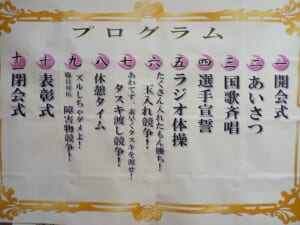 プログラム
一 開会式
二 あいさつ
三 国歌斉唱
四 選手宣誓
五 ラジオ体操
六 たくさん入れたもん勝ち!
玉入れ競争!
七 あわてず、素早くタスキを渡せ!
タスキ渡し競争!
八 休憩タイム
九 ズルしちゃダメよ!
障害物競争!
十 表彰式
十一 閉会式